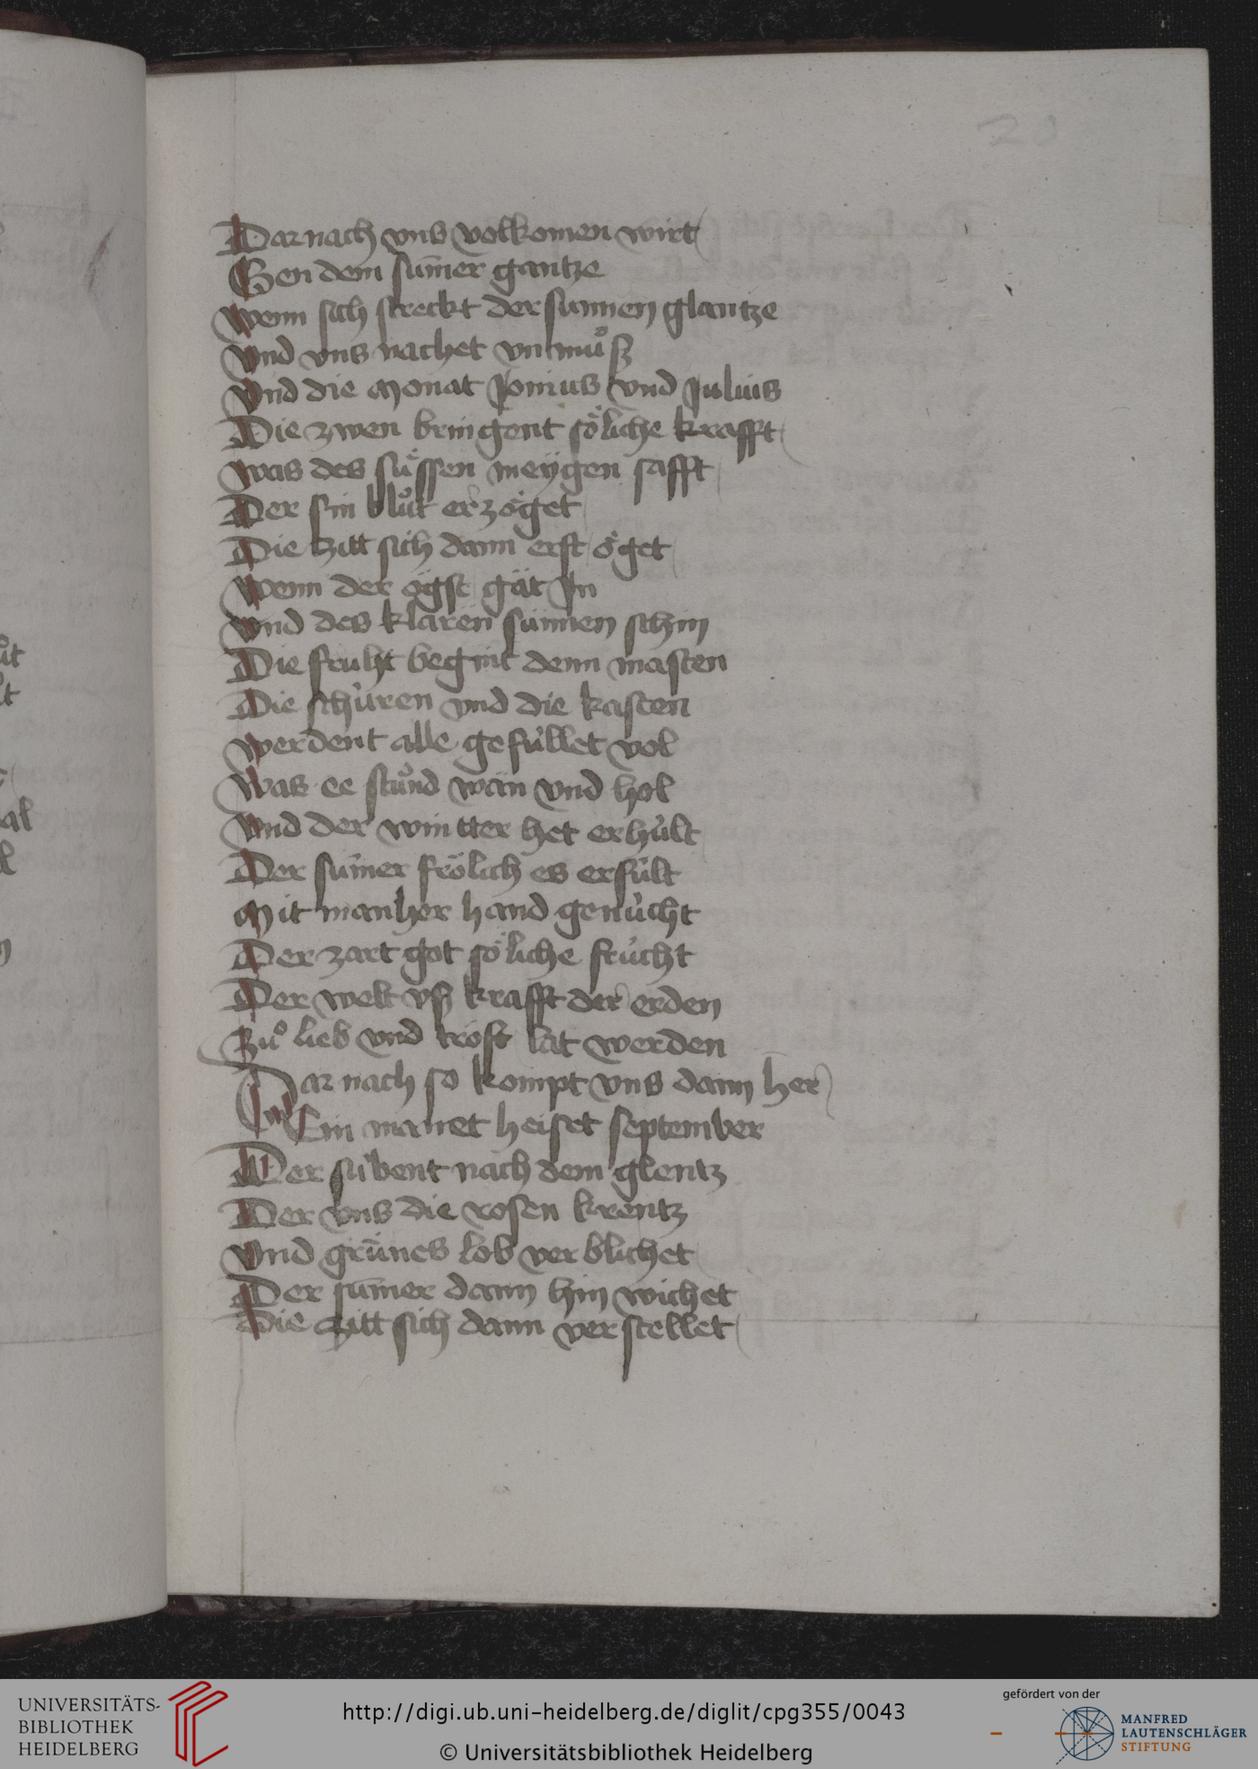 20
Dar nach vns volkomen wirt
Gen dem su̅mer gantze
Wenn sich streckt der sunnen glantze
Vnd vns nachet vnmuͦß
Vnd die monat Jonius vnd Julius
Die zwen bringent soͤliche krafft
Was des suͤssen meÿgen safft
Der sin bluͦt erzoͤget
Die zitt sich dann erst oͤget
Wenn der ögst gät Jn
Vnd des klaren sunnen schin
Die fruht begint denn masten
Die schüren vnd die kasten
Werdent alle gefüllet vol
Was ee stuͦnd wän vnd hol
Vnd der wintter het erhült
Der su̅mer frölich es erfült
Mit manher hand genücht
Der zart got soͤliche frücht
Der welt vß krafft der erden
Zuͦ lieb vnd trost lat werden
Dar nach so kompt vns dann her
Ein manet heiset september
Der sübent nach dem glentz
Der vns die rosen krentz
Vnd grünes lob verblichet
Der su̅mer dann hin wichet
Die zitt sich dann verstellet
UNIVERSITÄTS-
BIBLIOTHEK
HEIDELBERG
http://digi.ub.uni-heidelberg.de/diglit/cpg355/0043
© Universitätsbibliothek Heidelberg
gefördert von der
MANFRED
LAUTENSCHLÄGER
STIFTUNG